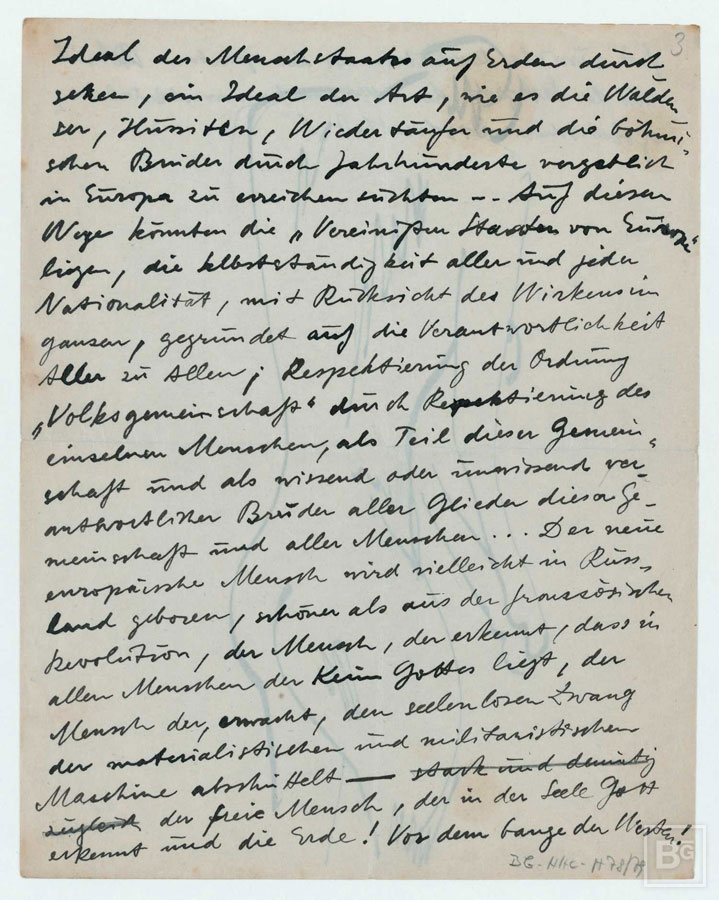 3
Ideal des Menschstaates auf Erden durch
setzen, ein Ideal der Art, wie es die Walden
ser, Hussiten, Wiedertäufer und die böhmi-
schen Brüder durch Jahrhunderte vergeblich
in Europa zu erreichen suchten -- Auf diesem
Wege könnten die „Vereinigten Staaten von Europa"
liegen, die Selbstständigkeit aller und jeder
Nationalität, mit Rücksicht des Wirkens im
ganzen, gegründet auf die Verantwortlichkeit
Aller zu Allen; Respektierung der Ordnung
„Volksgemeinschaft" durch Respektierung des
einzelnen Menschen, als Teil dieser Gemein-
schaft und als wissend oder unwissend ver-
antwortlicher Bruder aller Glieder dieser Ge-
meinschaft und aller Menschen... Der neue
europäische Mensch wird vielleicht in Russ-
land geboren, schöner als aus der französischen
Revolution, der Mensch, der erkennt, dass in
allen Menschen der Keim Gottes liegt, der
Mensch der, erwacht, den seelenlosen Zwang
der materialistischen und militaristischen
Maschine abschüttelt — stark und demütig
zugleich der freie Mensch, der in der Seele Gott
erkennt und die Erde! Vor dem bange der Westen!
BG-NHC-H 78/79
BG